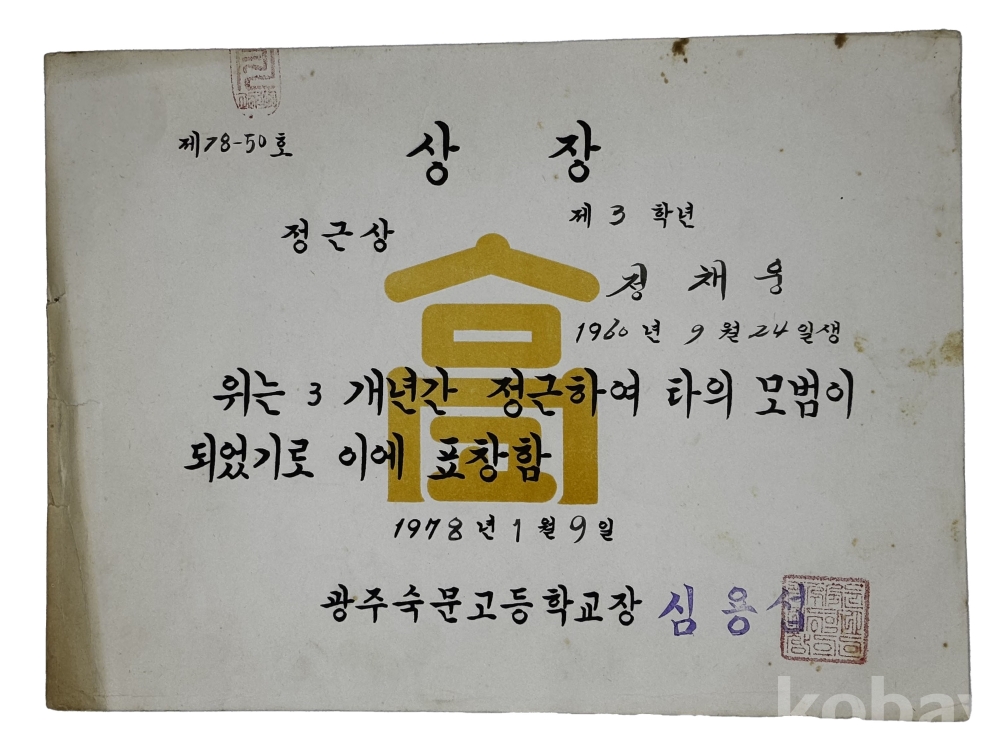 제78-50호
상 장
제 3 학년
정근상
정 채 웅
1960년 9월 24일생
위는 3 개년간 정근하여 타의 모범이
되었기로 이에 표창함
1978년 1월 9일
광주숙문고등학교장 심용섭
高
kobay